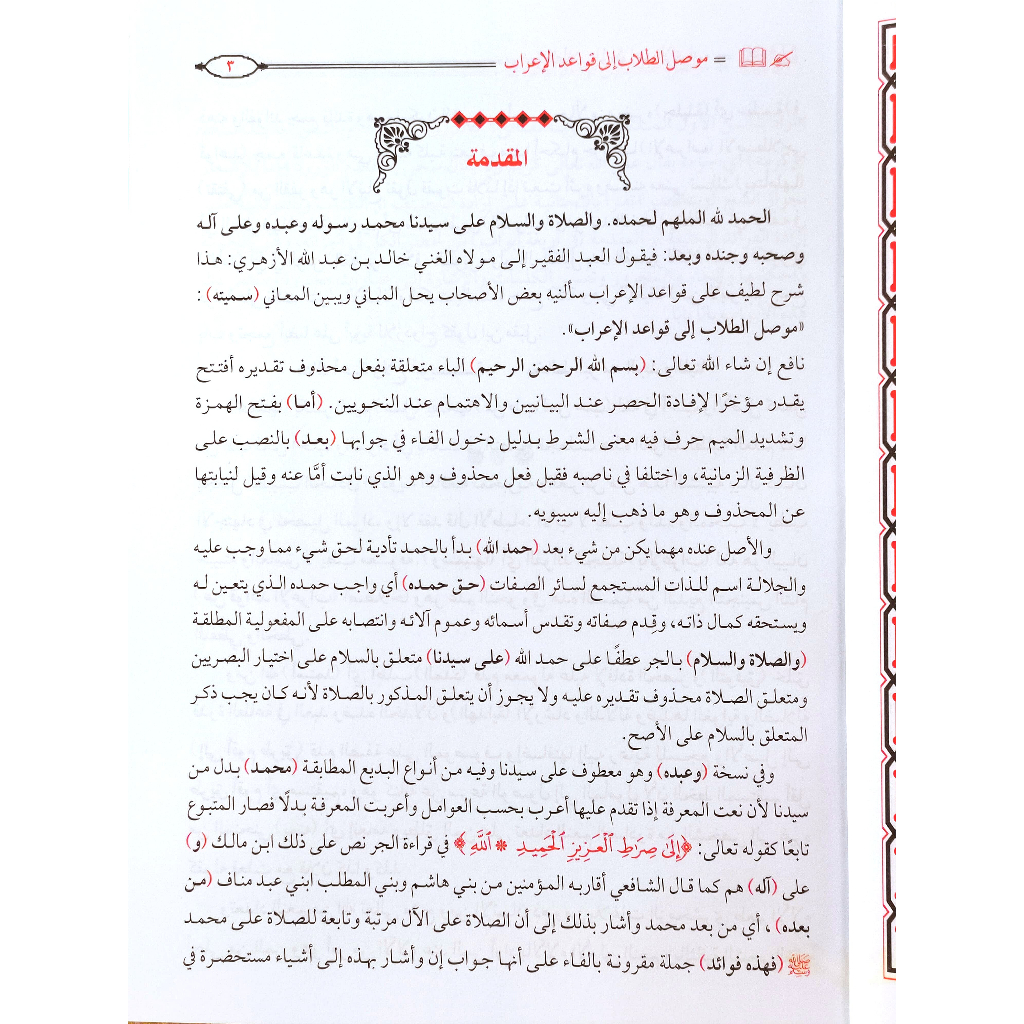 موصل الطلاب إلى قواعد الإعراب = ٣
المقدمة
الحمد لله الملهم لحمده. والصلاة والسلام على سيدنا محمد رسوله وعبده وعلى آله
وصحبه وجنده وبعد: فيقول العبد الفقير إلى مولاه الغني خالد بن عبد الله الأزهري: هذا
شرح لطيف على قواعد الإعراب سألنيه بعض الأصحاب يحل المباني ويبين المعاني (سميته) :
«موصل الطلاب إلى قواعد الإعراب».
نافع إن شاء الله تعالى: (بسم الله الرحمن الرحيم) الباء متعلقة بفعل محذوف تقديره أفتتح
يقدر مؤخرًا لإفادة الحصر عند البيانيين والاهتمام عند النحويين. (أما) بفتح الهمزة
وتشديد الميم حرف فيه معنى الشرط بدليل دخول الفاء في جوابها (بعد) بالنصب على
الظرفية الزمانية، واختلفا في ناصبه فقيل فعل محذوف وهو الذي نابت أمَّا عنه وقيل لنيابتها
عن المحذوف وهو ما ذهب إليه سيبويه.
والأصل عنده مهما يكن من شيء بعد (حمد الله) بدأ بالحمد تأدية لحق شيء مما وجب عليه
والجلالة اسم للذات المستجمع لسائر الصفات (حق حمده) أي واجب حمده الذي يتعين له
ويستحقه كمال ذاته، وقِدم صفاته وتقدس أسمائه وعموم آلائه وانتصابه على المفعولية المطلقة
(والصلاة والسلام) بالجر عطفًا على حمد الله (على سيدنا) متعلق بالسلام على اختيار البصريين
ومتعلق الصلاة محذوف تقديره عليه ولا يجوز أن يتعلق المذكور بالصلاة لأنه كان يجب ذكر
المتعلق بالسلام على الأصح.
وفي نسخة (وعبده) وهو معطوف على سيدنا وفيه من أنواع البديع المطابقة (محمد) بدل من
سيدنا لأن نعت المعرفة إذا تقدم عليها أعرب بحسب العوامل وأعربت المعرفة بدلًا فصار المتبوع
تابعًا كقوله تعالى: ﴿إِلَىٰ صِرَاطِ ٱلْعَزِيزِ ٱلْحَمِيدِ * ٱللَّهِ﴾ في قراءة الجر نص على ذلك ابن مالك (و)
على (آله) هم كما قال الشافعي أقاربه المؤمنين من بني هاشم وبني المطلب ابني عبد مناف (من
بعده) ، أي من بعد محمد وأشار بذلك إلى أن الصلاة على الآل مرتبة وتابعة للصلاة على محمد
ﷺ (فهذه فوائد) جملة مقرونة بالفاء على أنها جواب إن وأشار بهذه إلى أشياء مستحضرة في